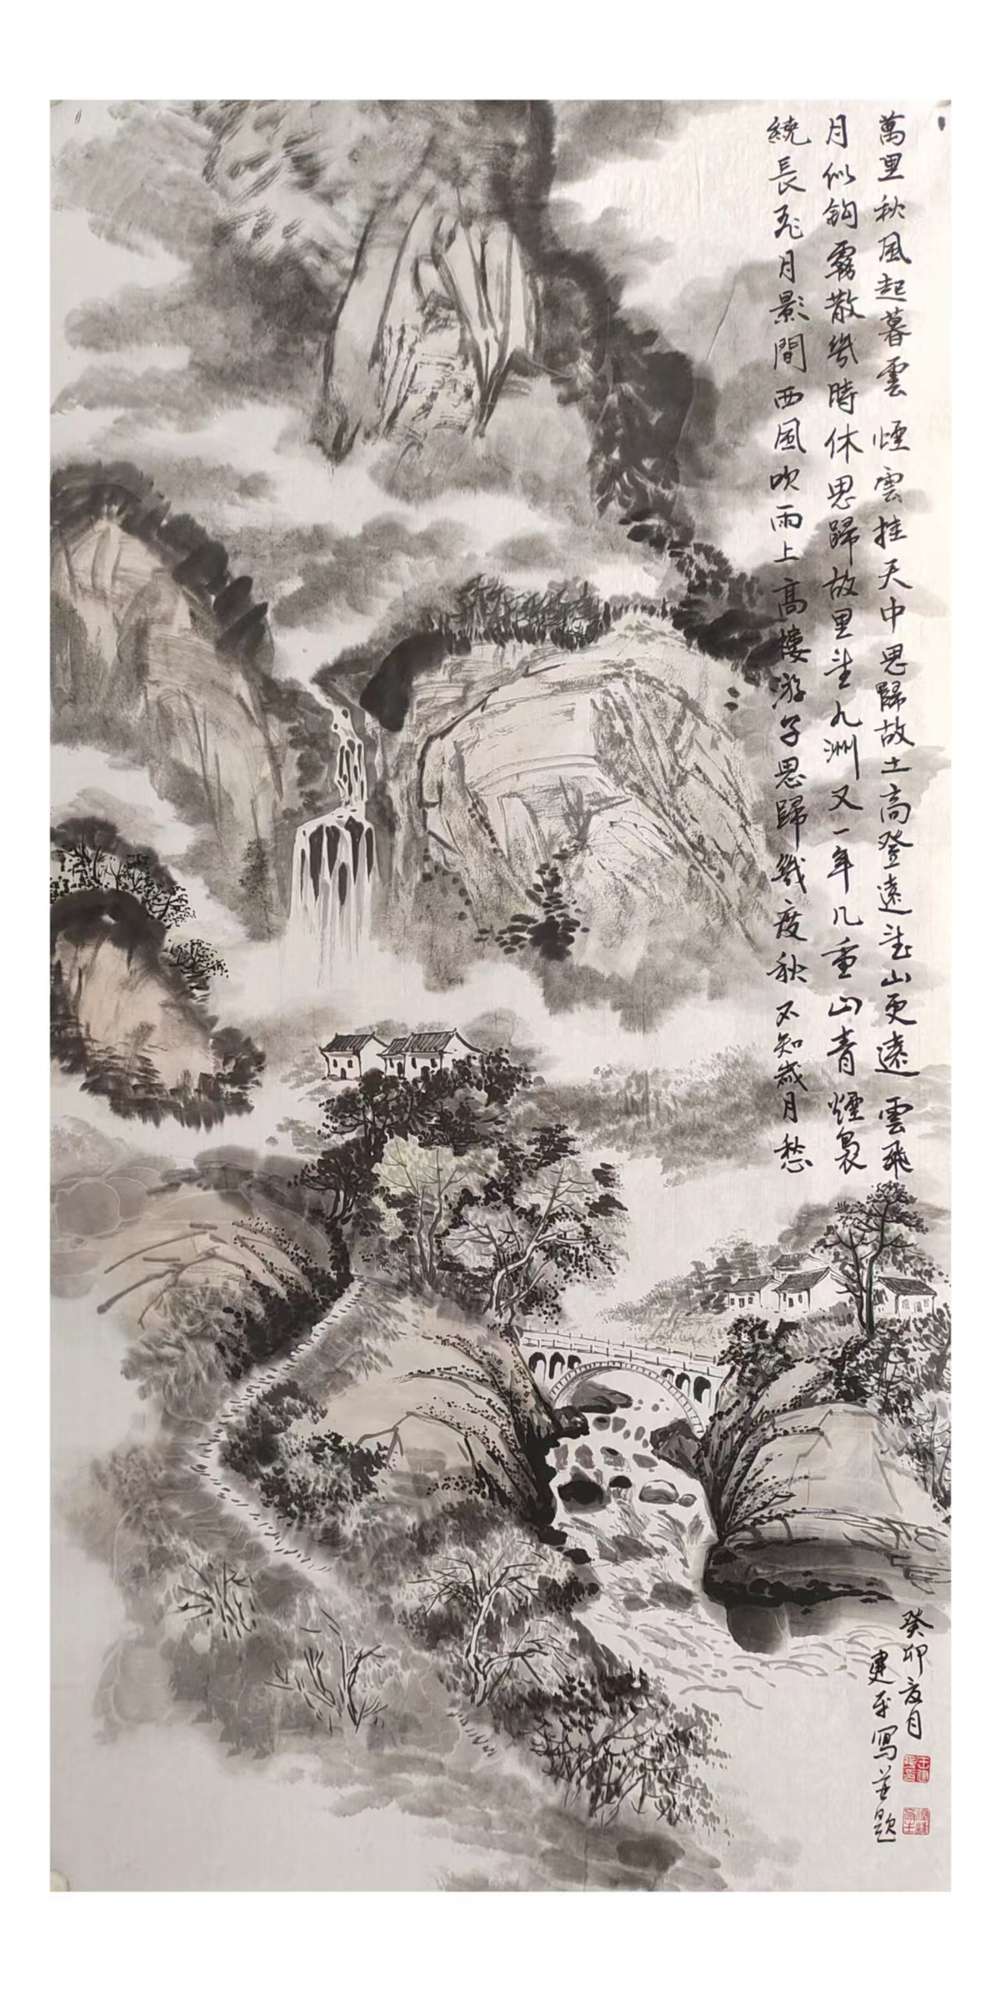 萬里秋風起暮雲 煙雲挂天中思歸故土高登遠望山更遠 雲飛
月似鈎霧散幾時休思歸故里望九洲又一年几重山青煙裊
繞長 月影間西風吹雨上高樓游子思歸幾度秋不知歲月愁
癸卯 月
建平寫並題